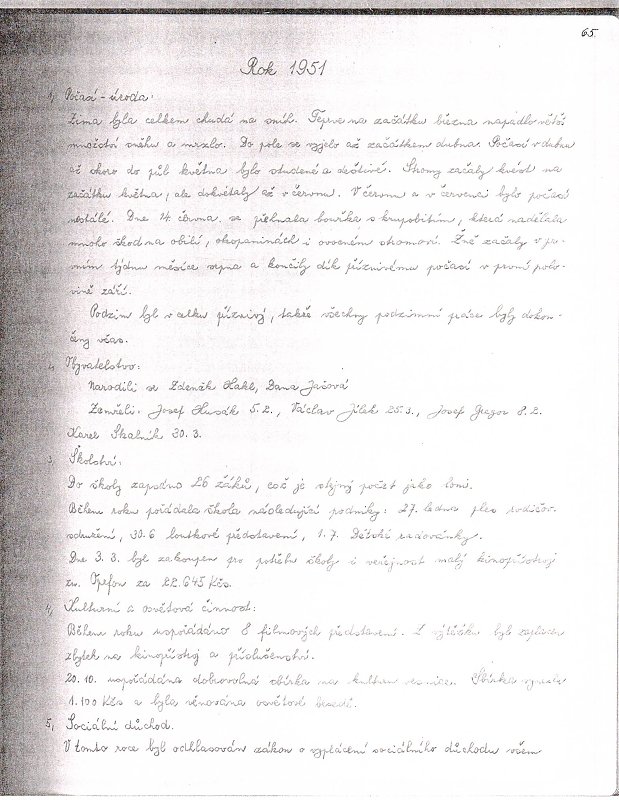 65.
Rok 1951
1, Počasí - úroda:
Zima byla celkem chudá na sníh. Teprve na začátku března napadlo větší
množství sněhu a mrzlo. Do pole se vyjelo až začátkem dubna. Počasí v dubnu
až skoro do půl května bylo studené a deštivé. Stromy začaly kvést na
začátku května, ale dokvétaly až v červnu. V červnu a v červenci bylo počasí
nestálé. Dne 14. června se přehnala bouřka s krupobitím, která nadělala
mnoho škod na obilí, okopaninách i ovocném stromoví. Žně začaly v pr-
vním týdnu měsíce srpna a končily dík příznivému počasí v první polo-
vině září.
Podzim byl v celku příznivý, takže všechny podzimní práce byly dokon-
čeny včas.
2, Obyvatelstvo:
Narodili se Zdeněk Hakl, Dana Jašová
Zemřeli: Josef Husák 5.2., Václav Jílek 25.3., Josef Gregor 8.2.
Karel Skalník 30.3.
3, Školství:
Do školy zapsáno 26 žáků, což je stejný počet jako loni.
Během roku pořádala škola následující podniky: 27. ledna ples rodičov.
sdružení, 30.6 loutkové představení, 1.7. Dětské radovánky.
Dne 3.3. byl zakoupen pro potřebu školy i veřejnost malý kinopřístroj
zn. Opefon za 22.645 Kčs.
4, Kulturní a osvětová činnost:
Během roku uspořádáno 8 filmových představení. Z výtěžku byl zaplacen
zbytek na kinopřístroj a příslušenství.
20.10. uspořádána dobrovolná sbírka na kulturu vesnice. Sbírka vynesla
1.100 Kčs a byla věnována osvětové besedě.
5, Sociální důchod.
V tomto roce byl odhlasován zákon o vyplácení sociálního důchodu všem